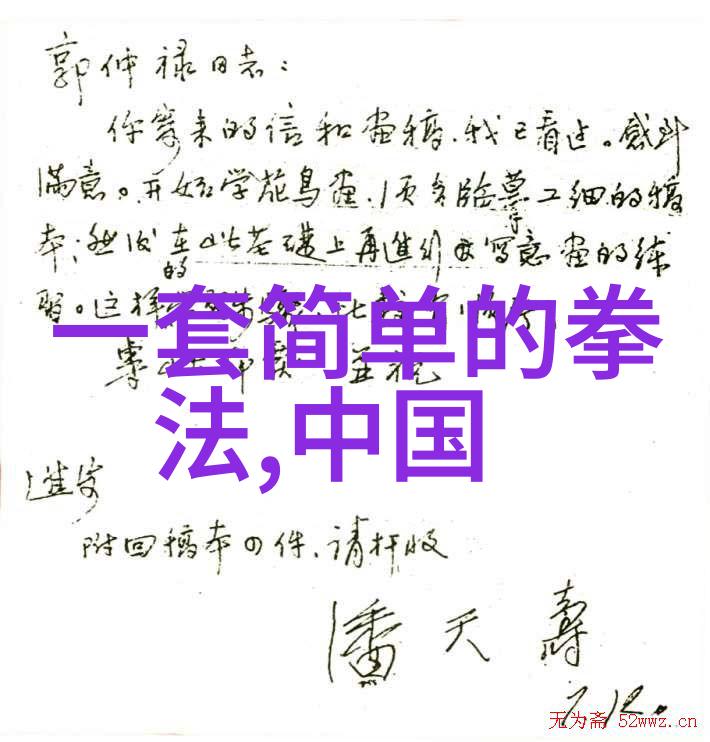 郭仲禄同志：
你寄来的信和画稿，我已看过。感到
满意。开始学花鸟画，须多临摹工细的稿
本；然后在此基础上再进行写意画的练
习。这样的
一套简单的拳
法,中国
进安
附回稿本四件，请检收
潘天寿
7.12.
无为斋 52wwz.cn